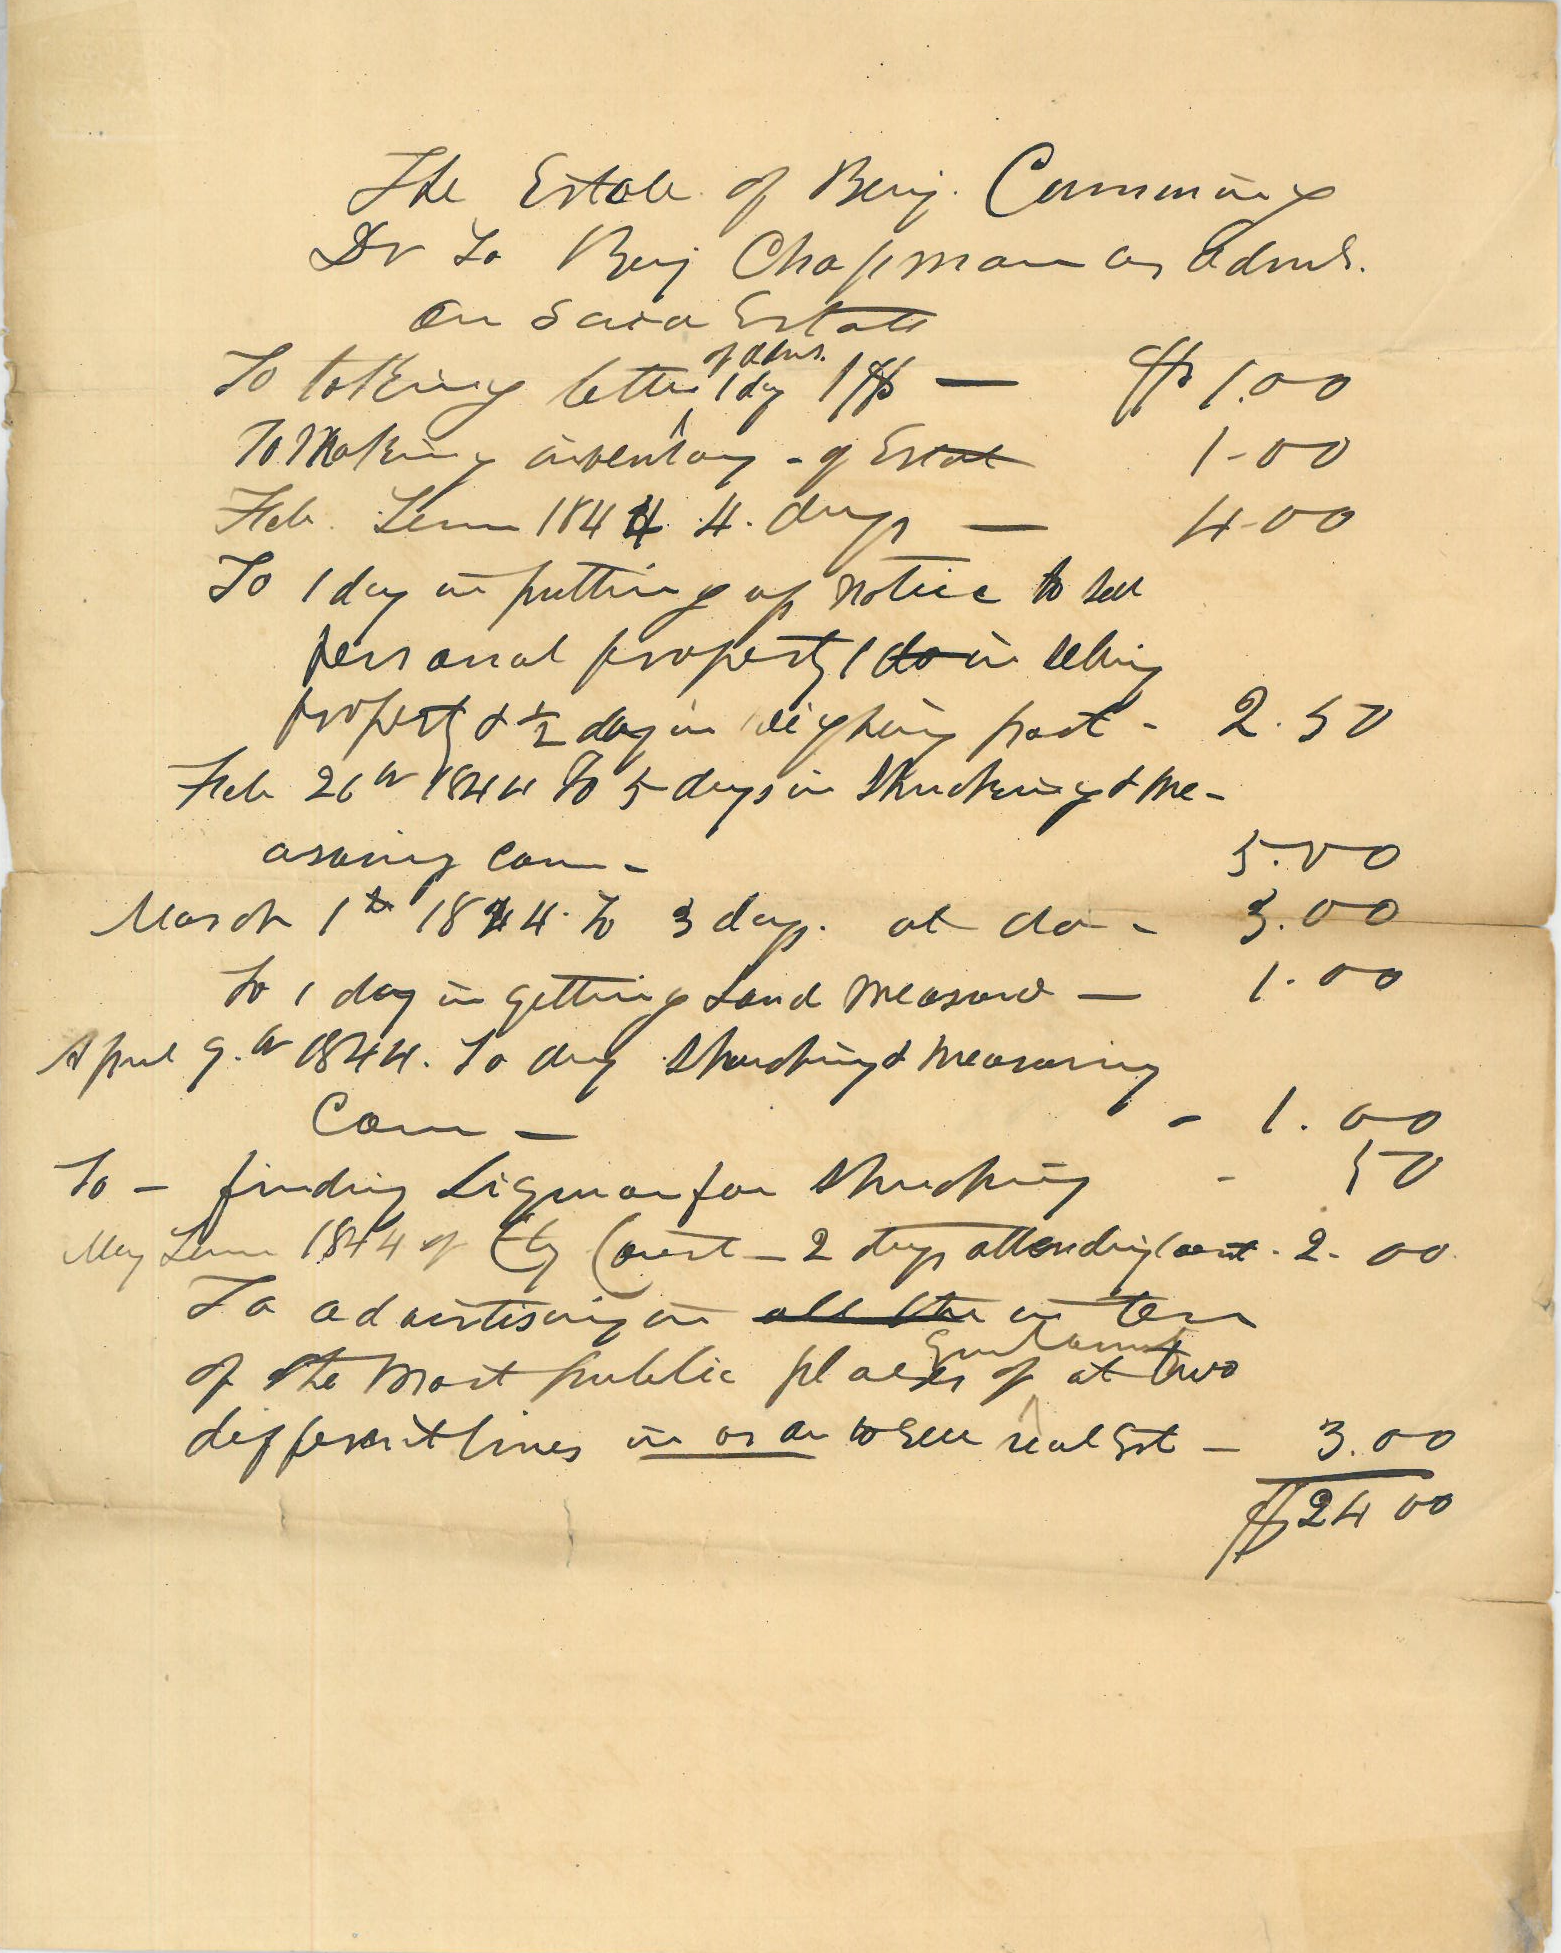 The Estate of Benj. Cumming
Dr To Benj Chapman as Adms.
on Said Estate
of Adms.
To taking letters 1 day 1$ — $1.00
To Making inventory - of Estat 1-00
Feb. Term 1844 4. days — 4-00
To 1 day in putting up notice to sell
personal property 1 do in selling
property & ½ day in weighing part - 2.50
Feb 26th 1844 To 5 days in Shucking & me-
asuring corn - 5.00
March 1st 1844. To 3 days. at do - 3.00
To 1 day in getting Land measured — 1.00
April 9.th 1844. To day Shucking & measuring
Corn — - 1.00
To — finding for Shucking - 50
May Term 1844 of Cty Court - 2 days attending Court - 2.00
To advertising in all the in ten
of the most public places of at two
different times in as an to Sell real Est — 3.00
$24 00